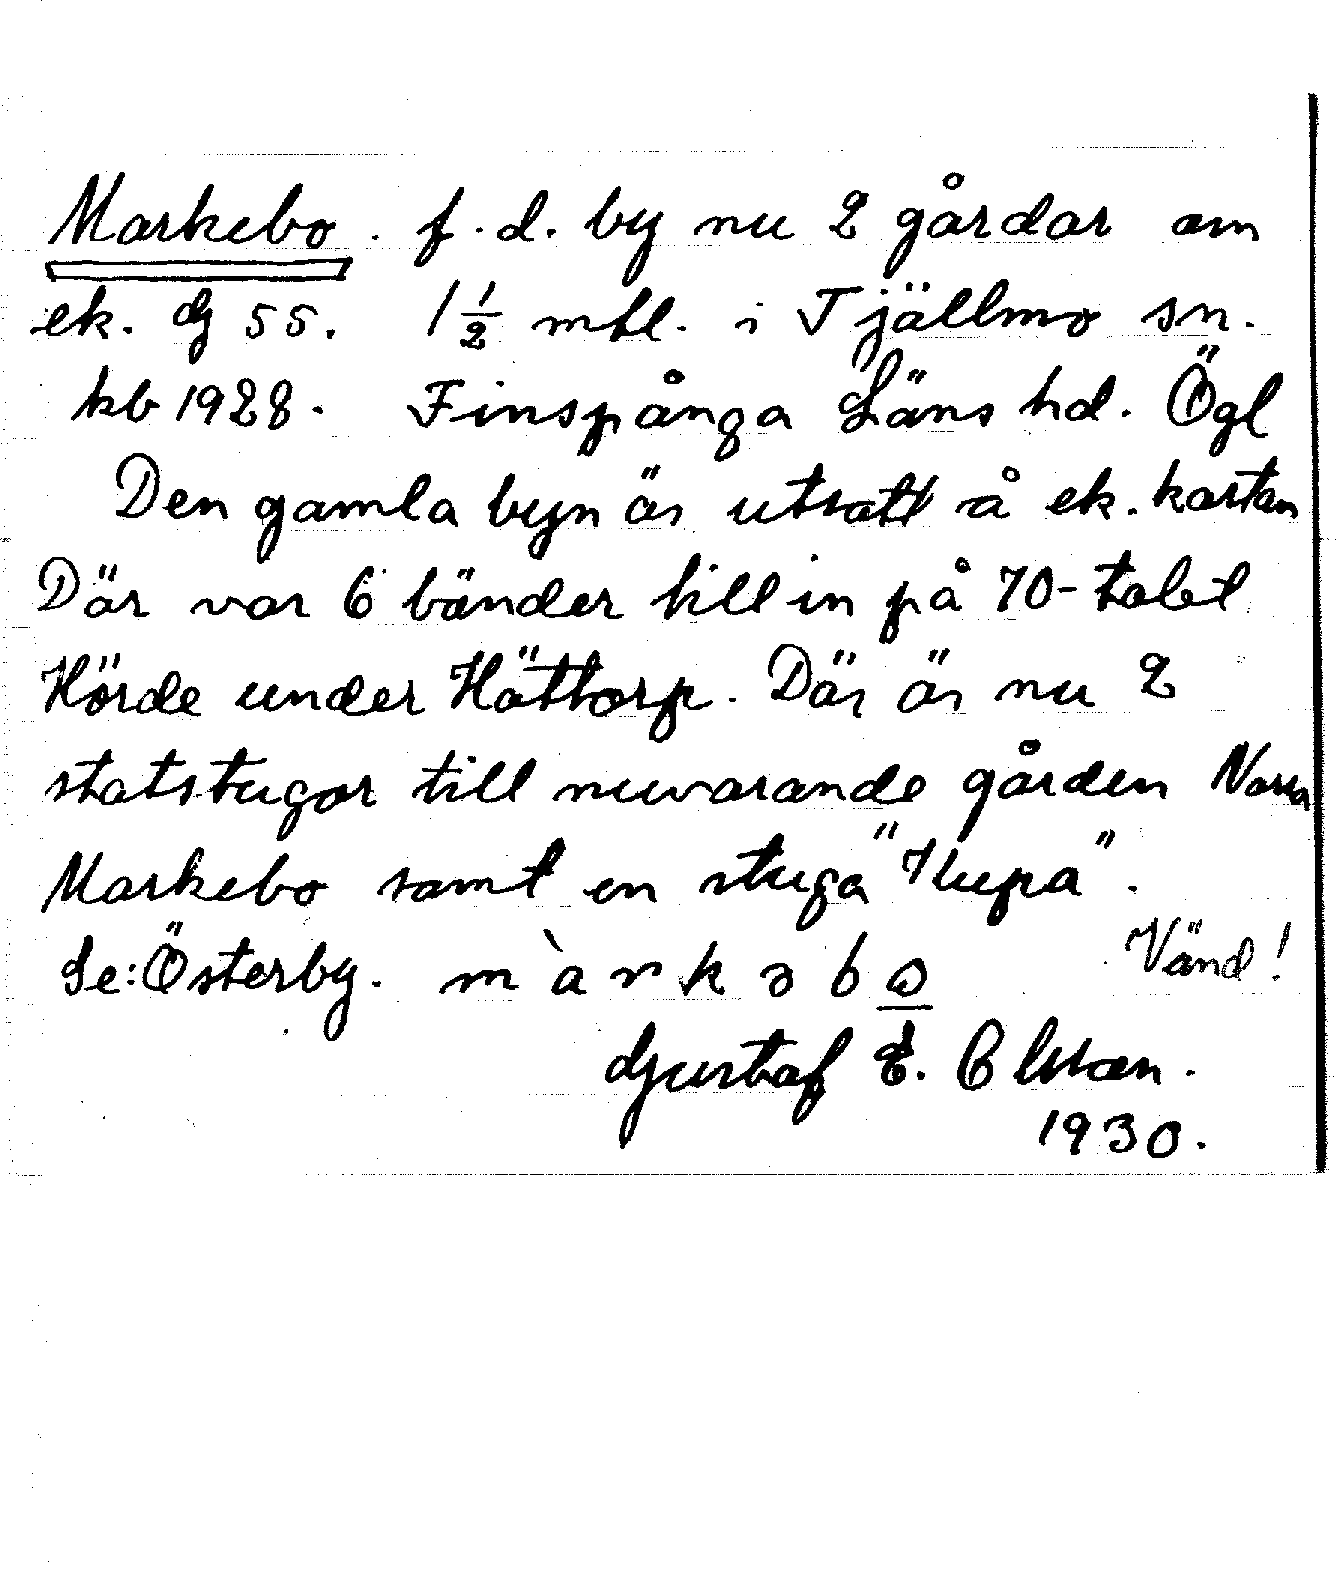 Markebo. f.d. by nu 2 gårdar om
ek. G 55. 1½ mtl. i Tjällmo sn.
kb 1928. Finspånga Läns hd. Ögl
Den gamla byn är utsatt å ek. kartan
Där var 6 bönder till in på 70-talet
Hörde under Hättorp. Där är nu 2
statstugor till nuvarande gården Norra
Markebo samt en stuga "Hupa".
Se: Österby. m à r k ə b o Vänd!
Gustaf E. Olsson.
1930.